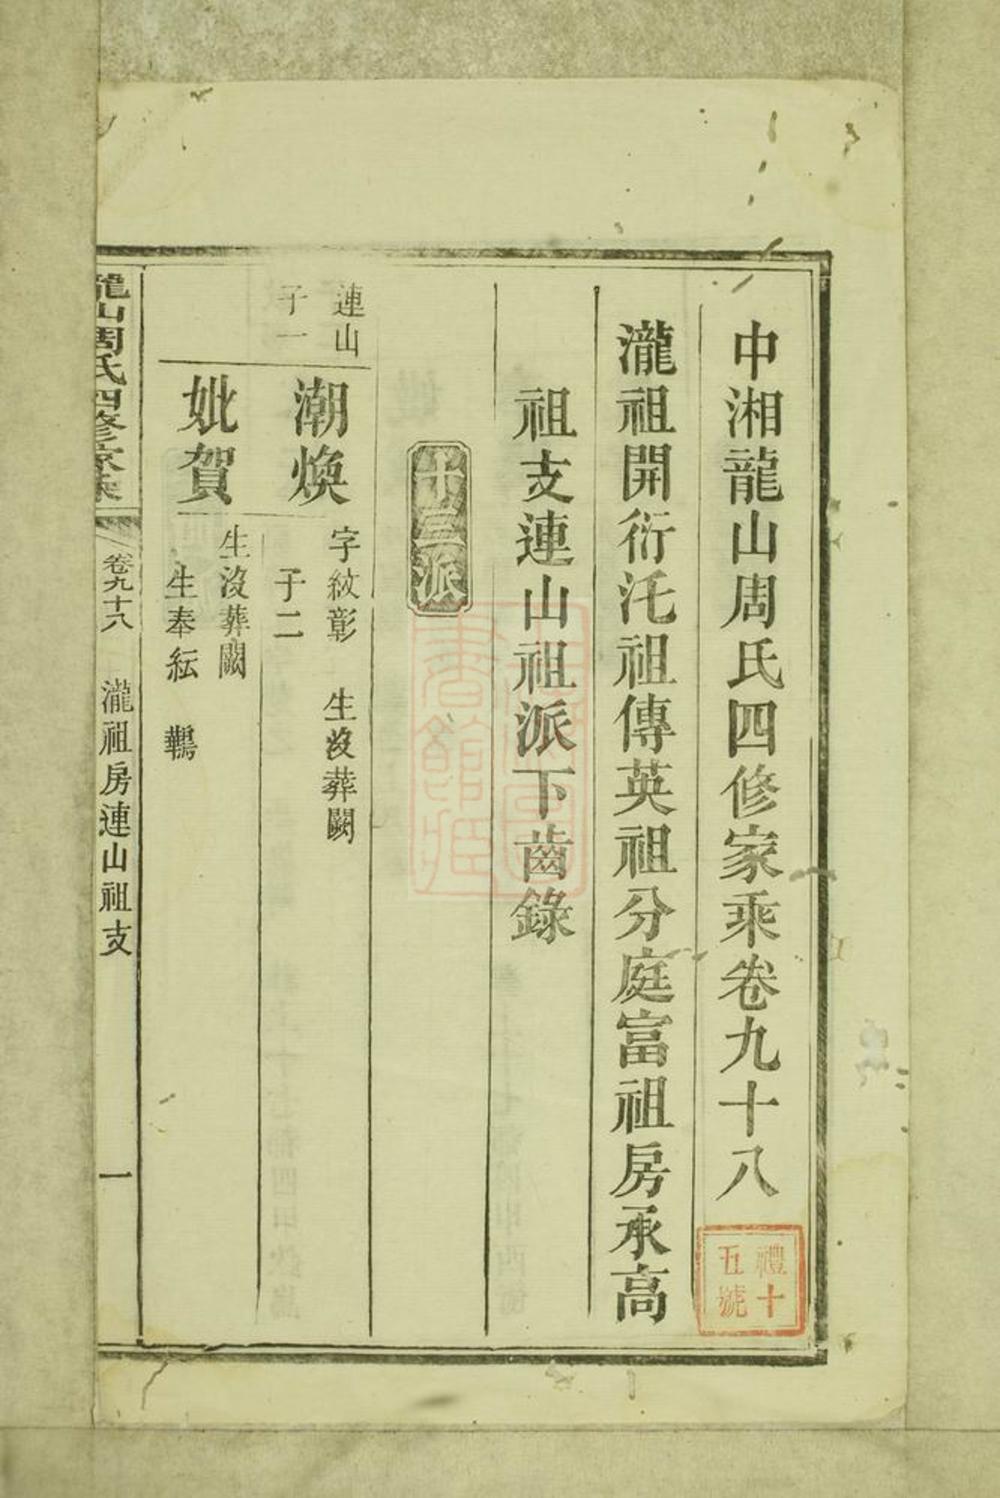 中湘龍山周氏四修家乘卷九十八
瀧祖開衍汑祖傳英祖分庭富祖房承高
祖支連山祖派下齒錄
十三派
連山
子一
潮煥
字紋彰 生沒葬闕
子二
妣賀
生沒葬闕
生奉紜 鸛
龍山周氏四修家乘
卷九十八
瀧祖房連山祖支
一
禮十
五號